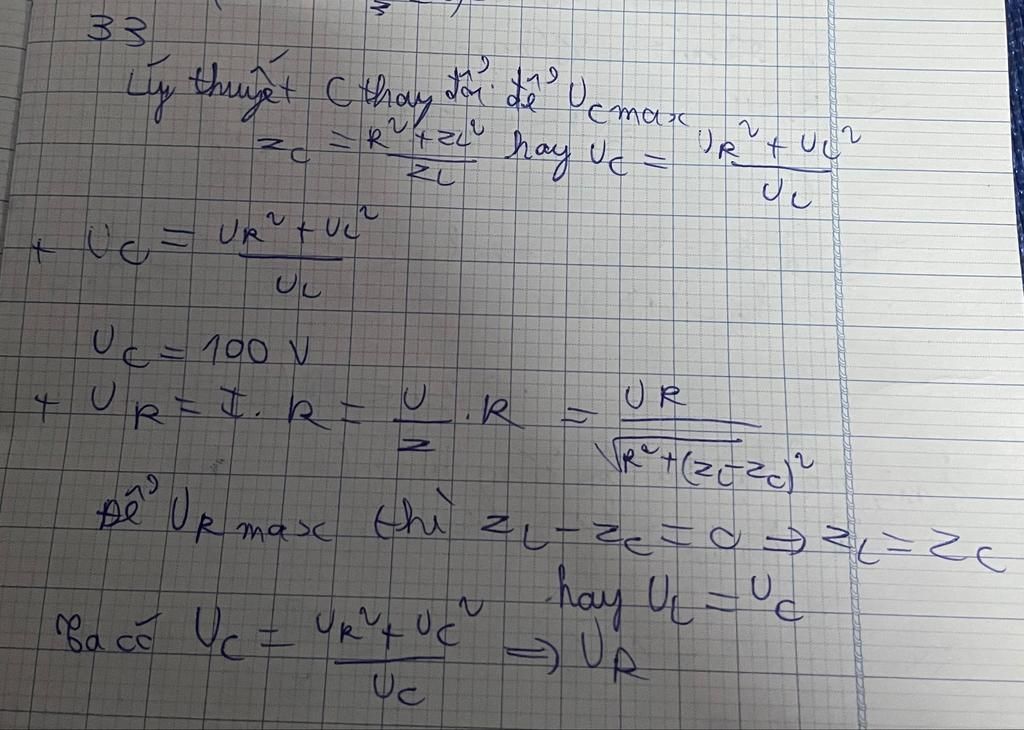 33
Lý thuyết C thay đổi để UCmax
ZC = R² + ZL² / ZL hay UC = UR² + UL² / UL
+ UC = UR² + UL² / UL
UC = 100 V
+ UR = I. R = U / Z . R = UR / √R² + (ZL - ZC)²
Để URmax thì ZL - ZC = 0 => ZL = ZC
hay UL = UC
Ta có UC = UR² + UC² / UC => UR